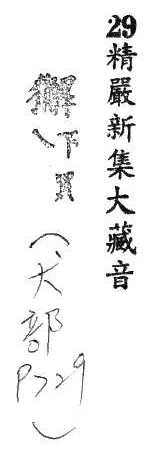 29精嚴新集大藏音
獬下買(犬部P729)